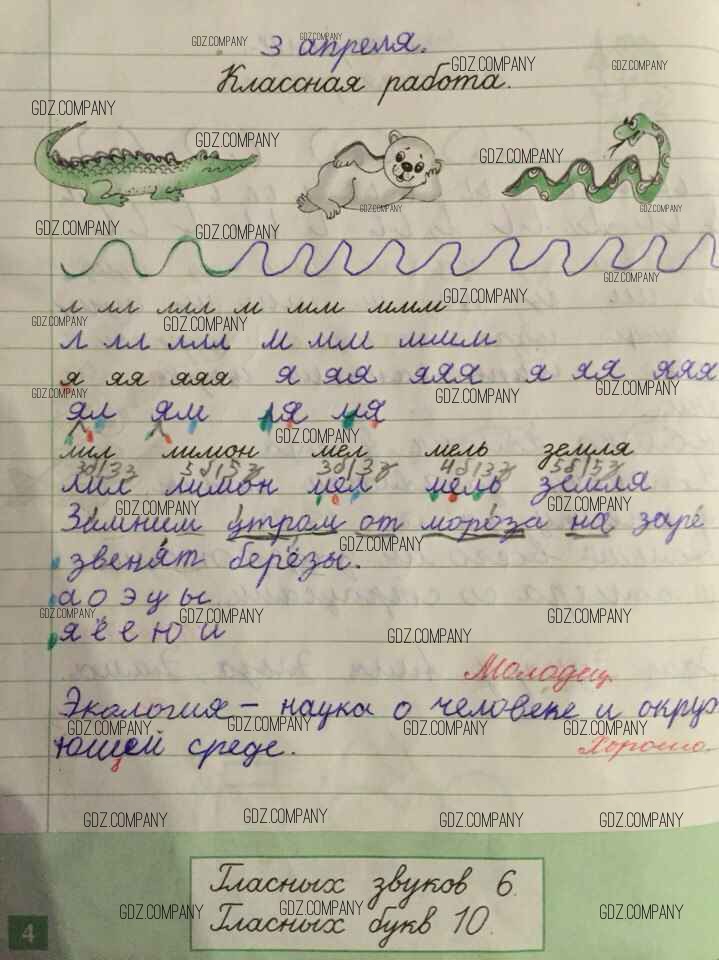 3 апреля.
Классная работа.
л лл ллл м мм ммм
л лл ллл м мм мммм
я яя яяя я яя яяя я яя яяя
ял ям ля мя
лил лимон мел мель земля
3б|3з 5б|5з 3б|3з 4б|3з 5б|5з
лил лимон мел мель земля
Зимним утром от мороза на заре
звенят берёзы.
а о э у ы
я ё е ю и
Молодец
Экология – наука о человеке и окру
ющей среде.
Хорошо.
Гласных звуков 6.
Гласных букв 10.
4
GDZ.COMPANY